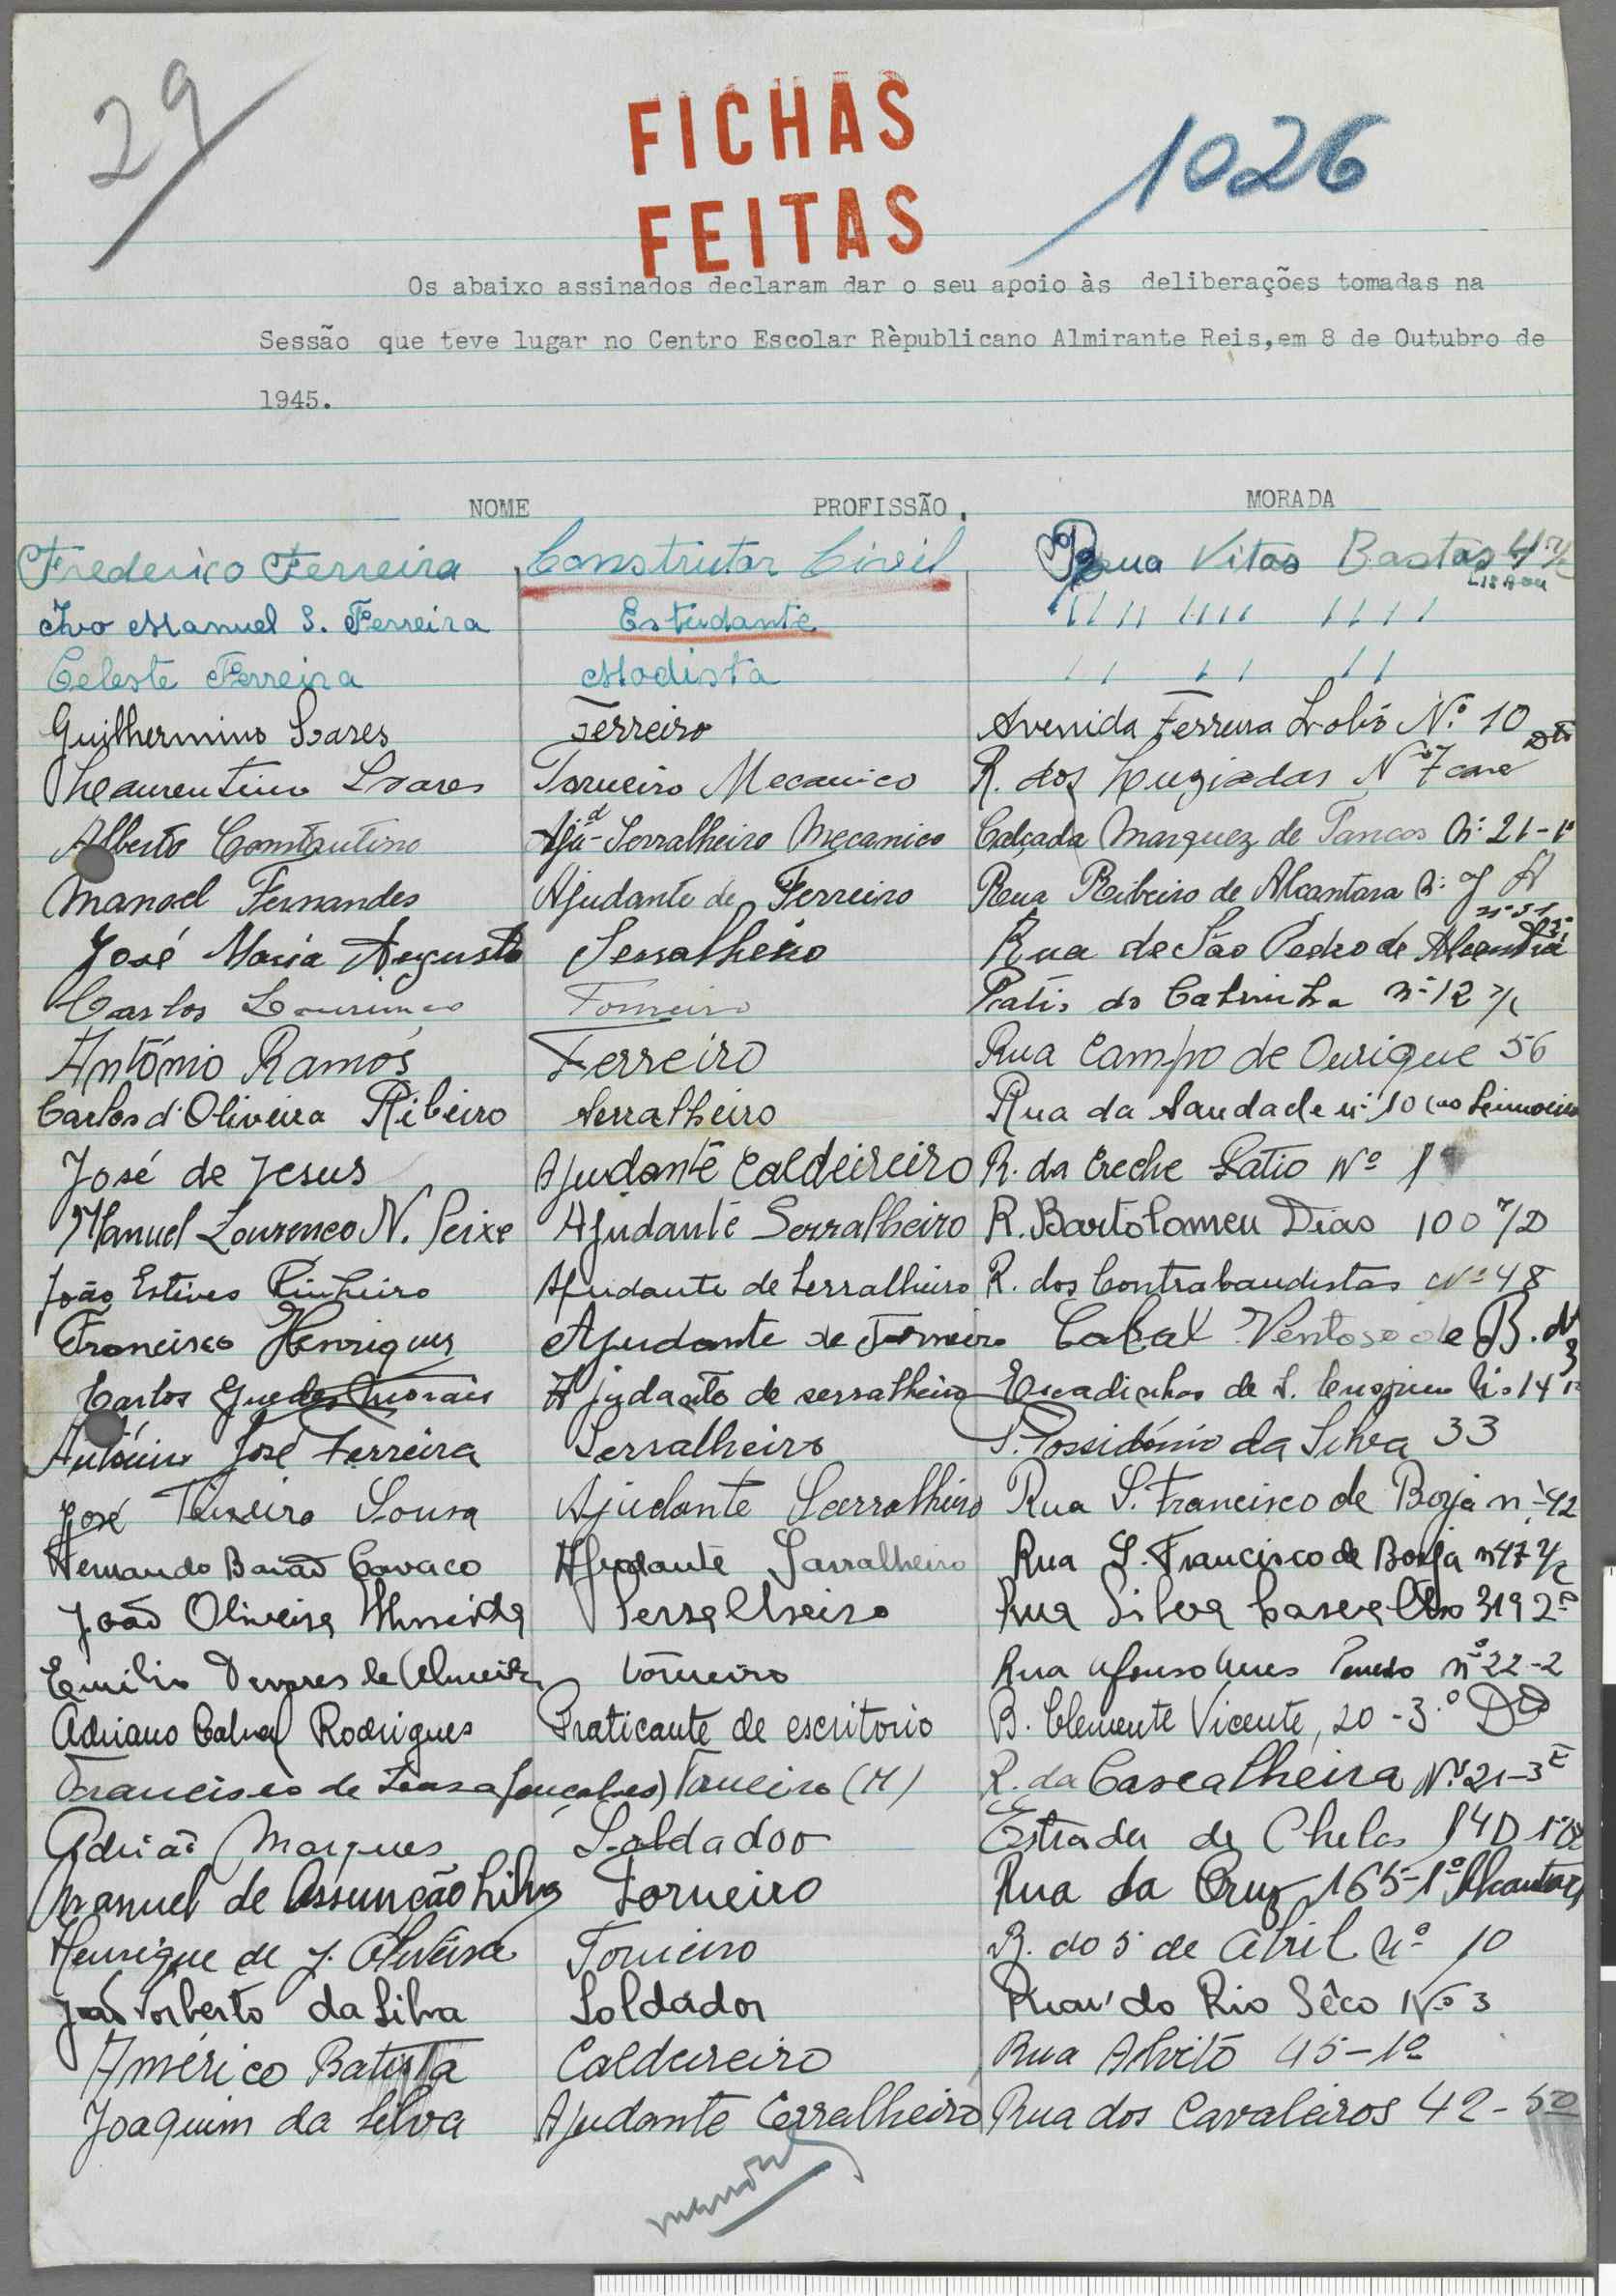 29
FICHAS
FEITAS
1026
Os abaixo assinados declaram dar o seu apoio às deliberações tomadas na
Sessão que teve lugar no Centro Escolar Rèpublicano Almirante Reis,em 8 de Outubro de
1945.
NOME PROFISSÃO. MORADA
Frederico Ferreira Construtor Civil Rua Vitas Bastas 4 r/c Lisboa
Ivo Manuel S. Ferreira Estudante " " "
Celeste Ferreira Modista " " "
Guilhermino Soares Ferreiro Avenida Ferreira Lobo Nº 10
Soares Torneiro Mecanico R. dos Luziadas Nº 7 cave
Alberto Constantino Ajud- Serralheiro Mecanico Calçada Marquez de Tancos Nº 21-1º
Manoel Fernandes Ajudante de Ferreiro Rua Ribeiro de Alcantara
José Maria Augusto Serralheiro Rua de São Pedro de
Carlos Lourenço Torneiro nº 12 r/c
António Ramos Ferreiro Rua Campo de Ourique 56
Carlos d'Oliveira Ribeiro Serralheiro Rua da Saudade nº 10
José de Jesus Ajudante Caldeireiro R. da Creche Patio Nº 1
Manuel Lourenco N. Peixe Ajudante Serralheiro R. Bartolomeu Dias 100 r/D
João Esteves Pinheiro Ajudante de Serralheiro R. dos Contrabandistas Nº 48
Francisco Henriques Ajudante de Torneiro Casal Ventoso de B. Nº 3
Carlos Guedes Morais Ajudante de serralheiro Escadinhas de S. Nº 14
António José Ferreira Serralheiro Possidónio da Silva 33
José Teixeira Sousa Ajudante Sarralheiro Rua S. Francisco de Borja nº 42
Hernando Baião Cavaco Ajudante Sarralheiro Rua S. Francisco de Borja nº 47 r/c
João Oliveira Almeida Serralheiro Rua Silva Carvalho 319 2º
Emilio de Almeida torneiro Rua Afonso Anes Penedo nº 22-2
Adriano Cabral Rodrigues Praticante de escritorio B. Clemente Vicente, 20-3.º Dto
Francisco de Sousa Gonçalves Torneiro (M) R. da Cascalheira Nº 21-3º
Adrião Marques Soldador Estrada de Chelas 14D
Manuel de Assunção Silva Torneiro Rua da Cruz 165-1º Alcantara
Henrique de J. Oliveira Torneiro B. do 5 de Abril nº 10
João Norberto da Silva Soldador Rua do Rio Sêco Nº 3
Américo Batista Caldeireiro Rua Alvito 45-1º
Joaquim da Silva Ajudante Cerralheiro Rua dos Cavaleiros 42-5º